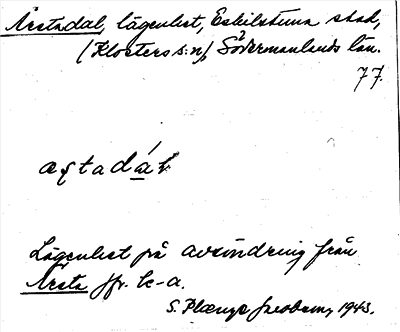 Årstadal, lägenhet, Eskilstuna stad,
(Klosters s:n), Södermanlands län.
77.
Lägenhet på avsöndring från
Årsta jfr.
S. Plænge Jacobson, 1943.